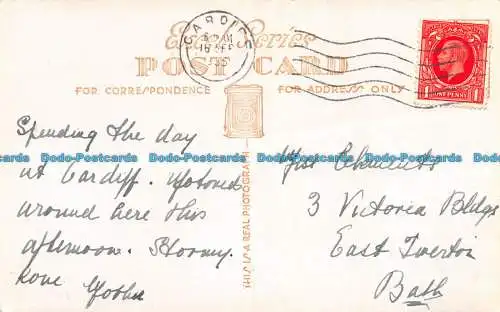 CARDIFF
Excel Series
POST CARD
FOR CORRESPONDENCE
FOR ADDRESS ONLY
ONE PENNY
Dodo-Postcards Dodo-Postcards Dodo-Postcards Dodo-Postcards Dodo-Postcards
THIS IS A REAL PHOTOGRAPH
Spending the day
at Cardiff. Motored
around here this
afternoon. Stormy.
Love
Clements
3 Victoria Bldgs
East Twerton
Bath